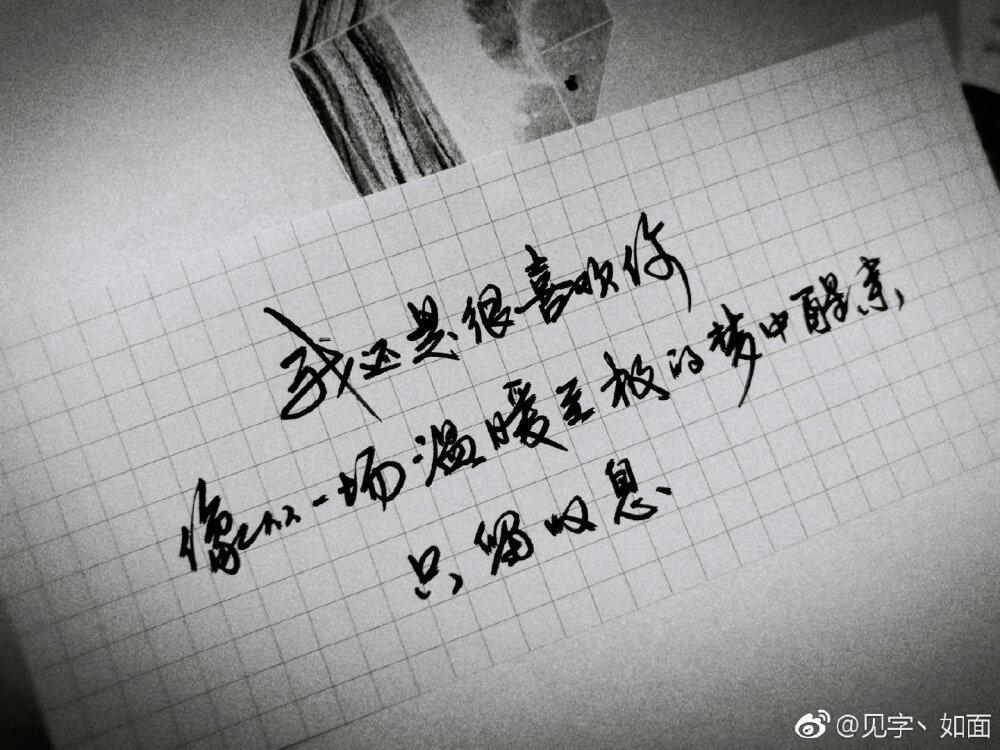 我还是很喜欢你
像从一场温暖至极的梦中醒来，
只留叹息
@见字丶如面